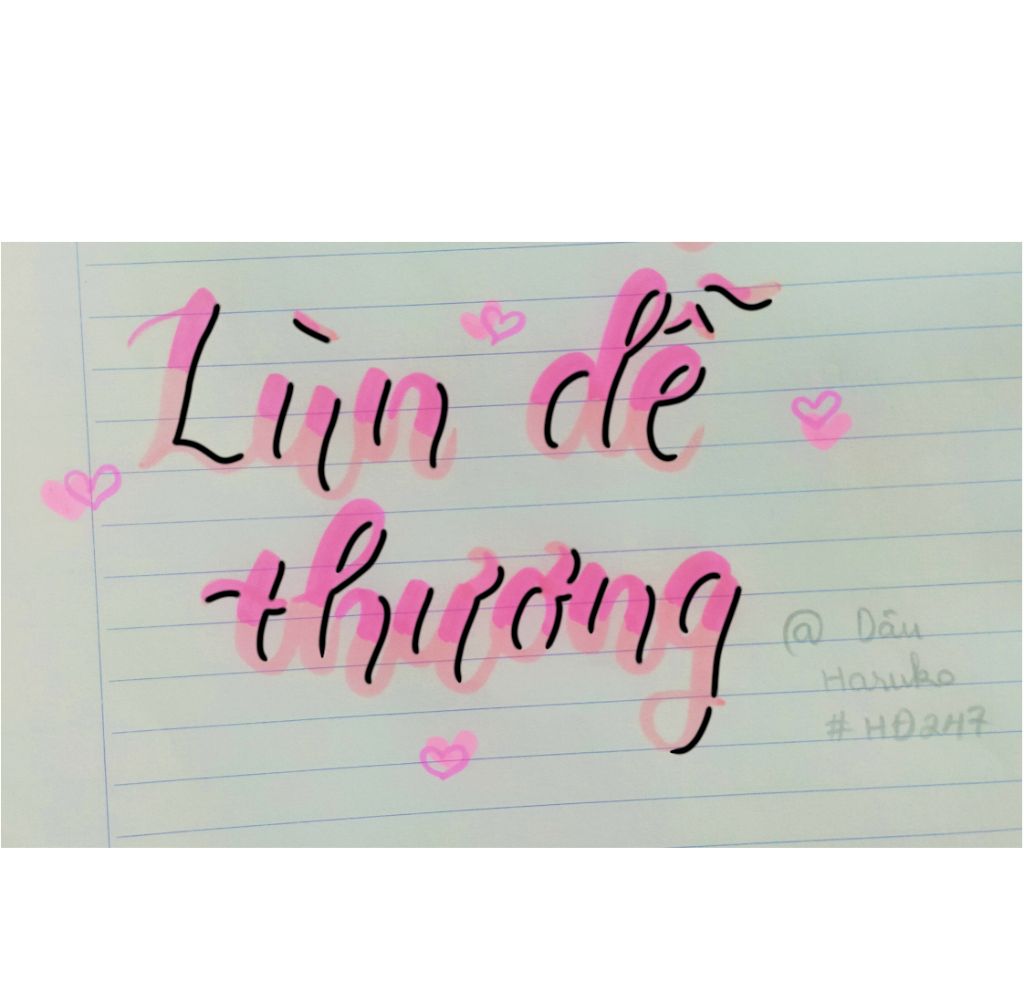 Lùn dễ
thương
@ Dâu
Haruko
#HĐ247